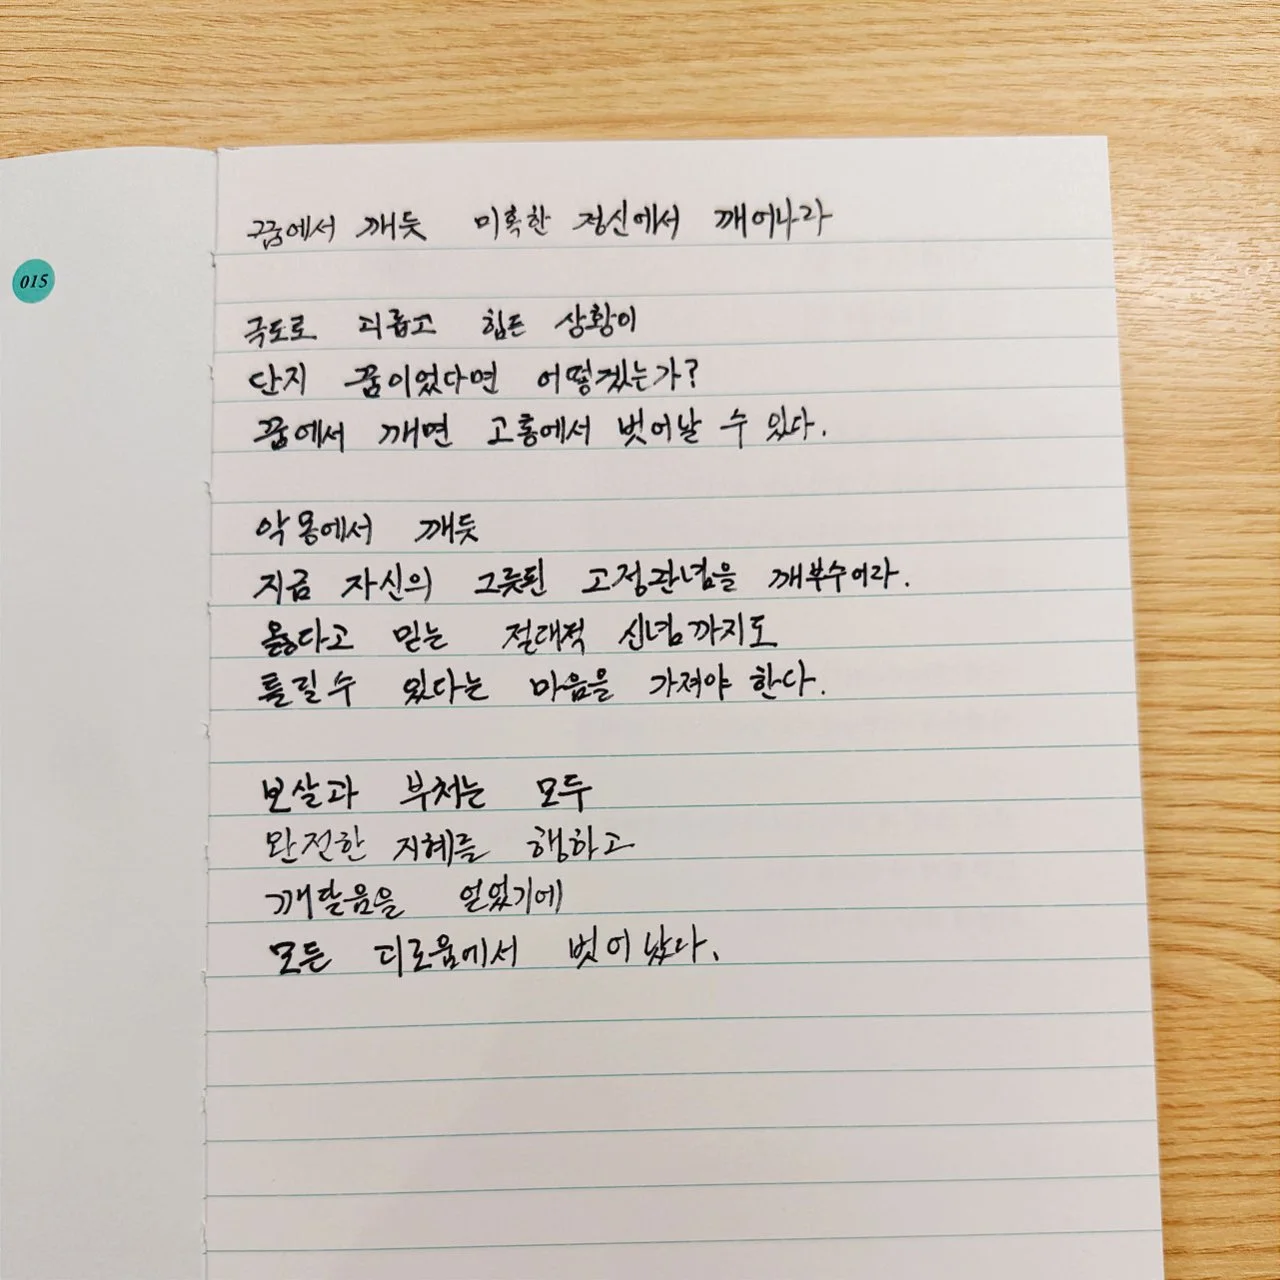 015
꿈에서 깨듯 미혹한 정신에서 깨어나라
극도로 괴롭고 힘든 상황이
단지 꿈이었다면 어떻겠는가?
꿈에서 깨면 고통에서 벗어날 수 있다.
악몽에서 깨듯
지금 자신의 그릇된 고정관념을 깨부수어라.
옳다고 믿는 절대적 신념까지도
틀릴 수 있다는 마음을 가져야 한다.
보살과 부처는 모두
완전한 지혜를 행하고
깨달음을 얻었기에
모든 괴로움에서 벗어났다.